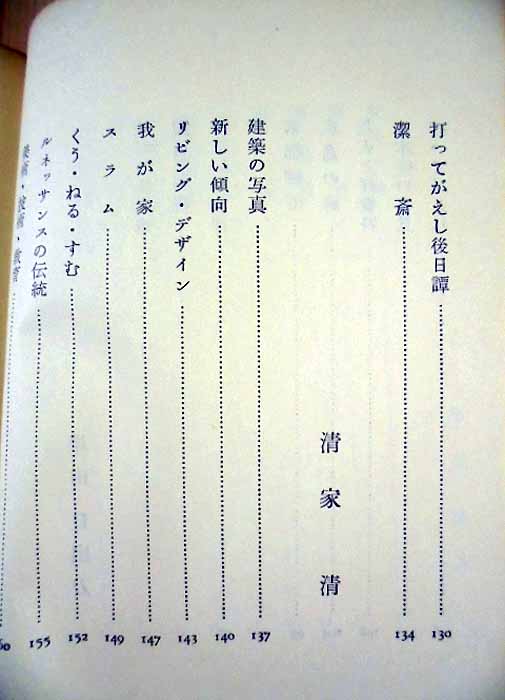 打ってがえし後日譚 130
潔斎 134
清家 清
建築の写真 137
新しい傾向 140
リビング・デザイン 143
我が家 147
スラム 149
くう・ねる・すむ 152
ルネッサンスの伝統 155